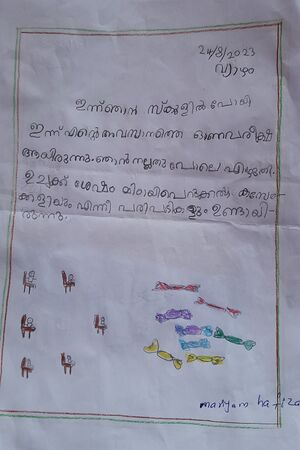 24/8/2023
വ്യാഴം
ഇന്ന് ഞാൻ സ്കൂളിൽ പോയി
ഇന്ന് എന്റെ അവസാനത്തെ ഓണപരീക്ഷ
ആയിരുന്നു. ഞാൻ നല്ലതുപോലെ എഴുതി.
ഉച്ചക്ക് ശേഷം മിഠായിപെറുക്കൽ, കസേര-
ക്കളിയും എന്നീ പരിപാടികളും ഉണ്ടായി-
രുന്നു.
mariyam hafiza